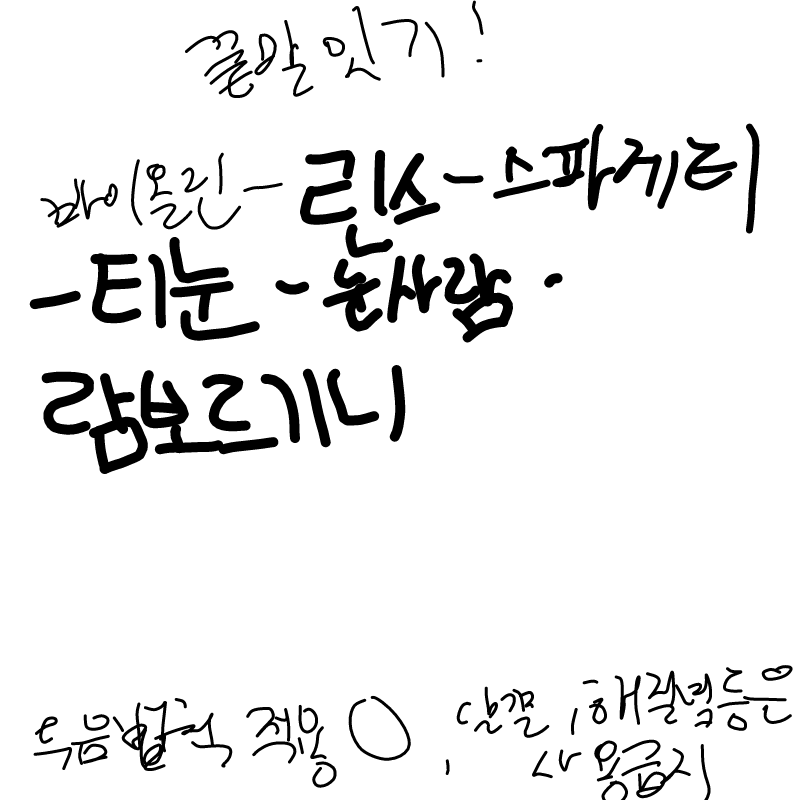 끝말잇기!
바이올린-린스-스파게티
-티눈-눈사람-
람보르기니
두음법칙 적용 O, 단결, 해질녘등은
사용금지